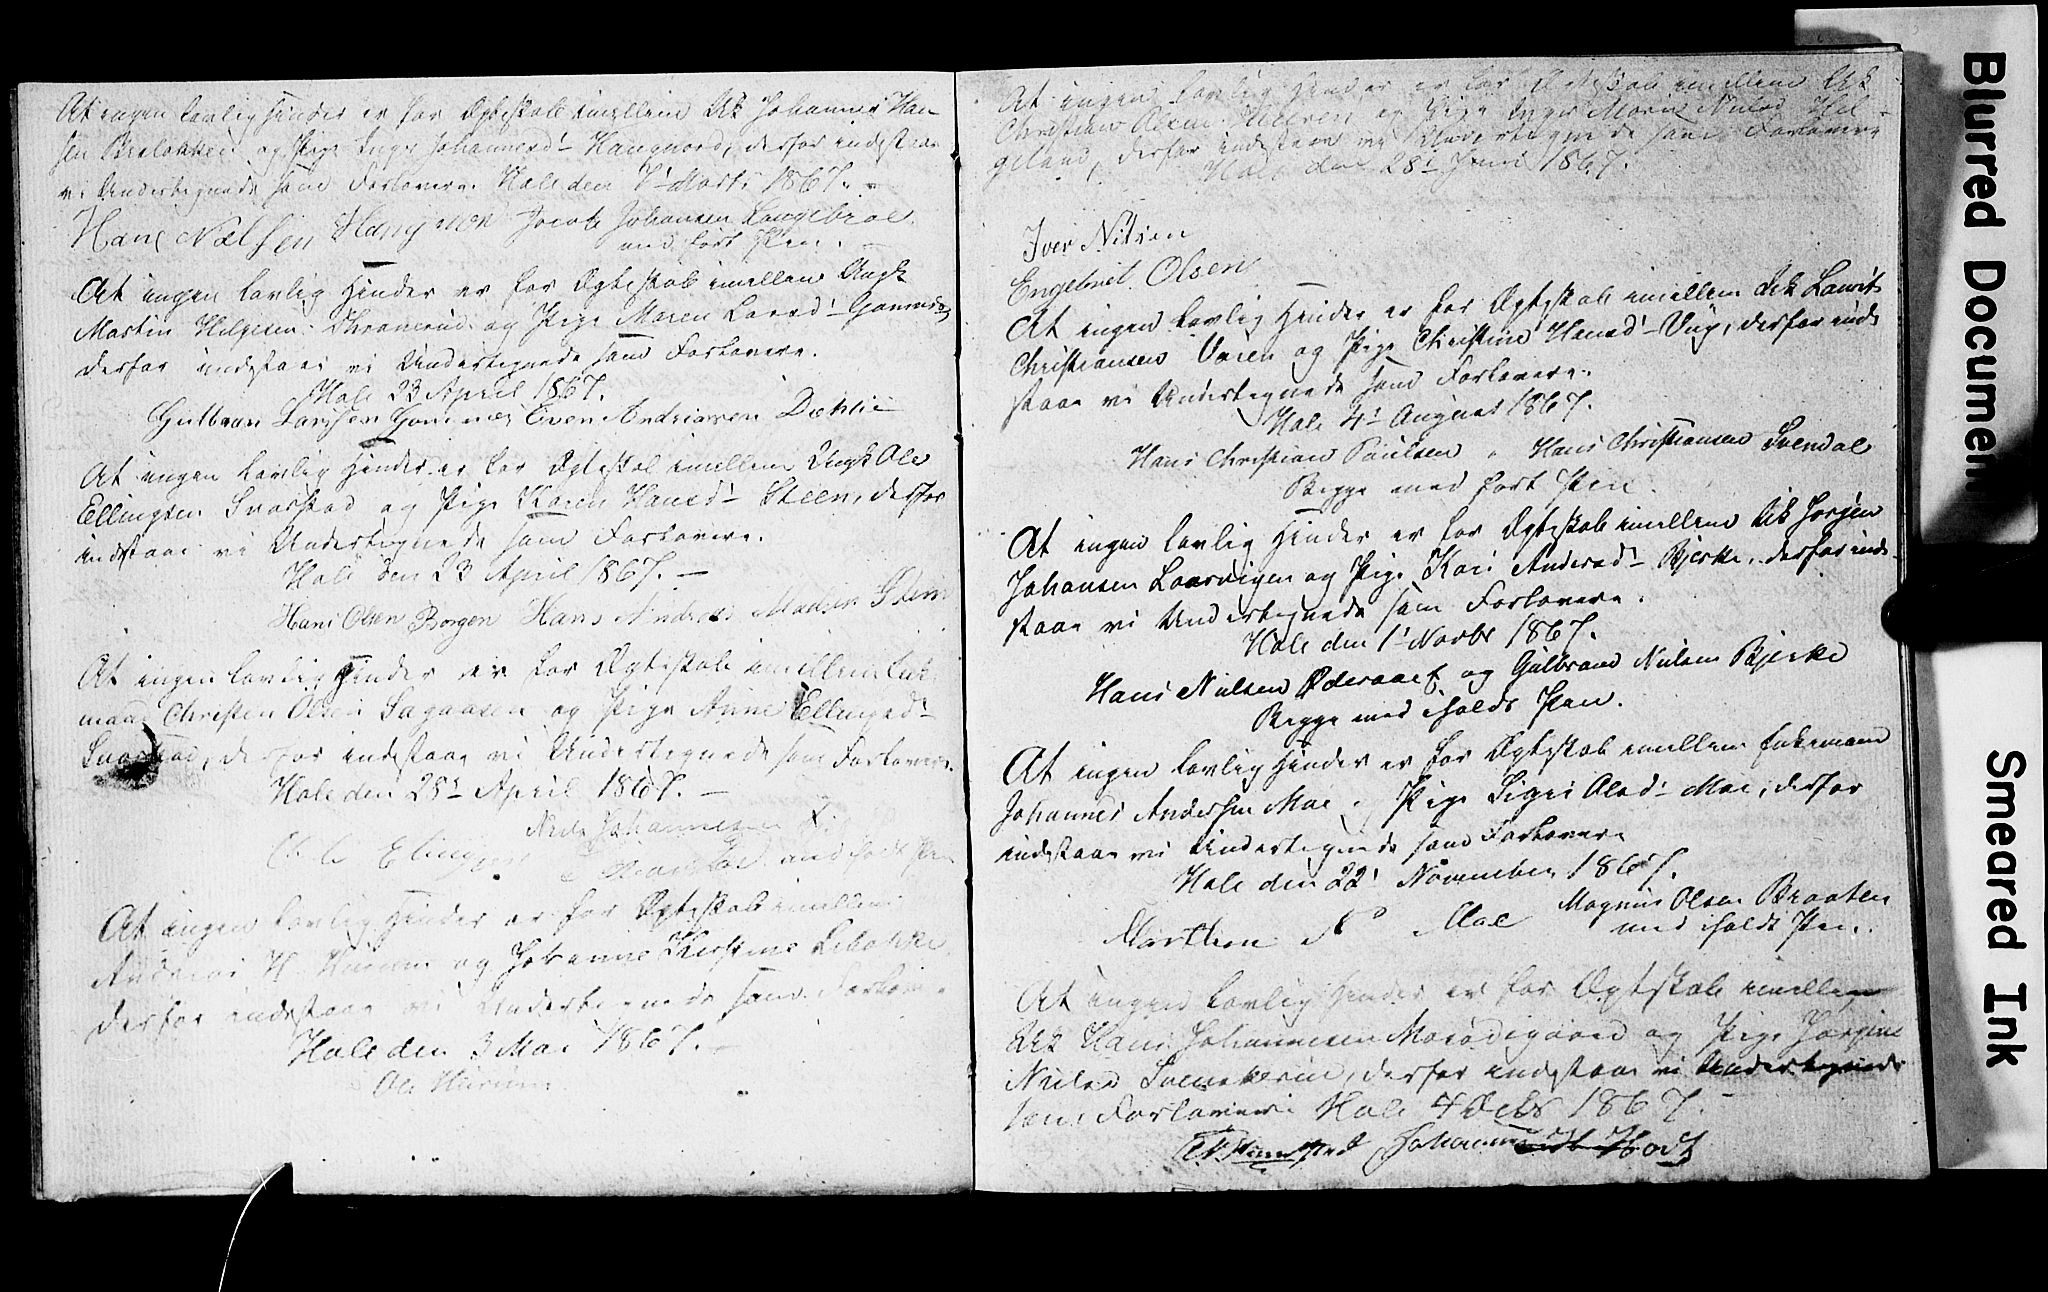 At ingen lovlig Hinder er for Ægteskab imellem Uk Johannes Han-
sen Brolokken og Pige Inger Johannesd! Haugnord, derfor indestaae
vi Undertegnede som Forlovere. Hole den 7! Marts 1867. —
Hans Nælsen Jacob Johansen Langebroe
med ført Pen. —
At ingen lovlig Hinder er for Ægteskab imellem Ungk
Martin Helgesen Thranerud og Pige Maren Larsd!
derfor indestaae vi Undertegnede som Forlovere.
Hole 23 April 1867.
Gulbran Larssen Even Andriassen Dæhlie
At ingen lovlig Hinder er for Ægteskab imellem Ungk Ole
Ellingsen Svarstad og Pige Karen Hansd! Steen, derfor
indestaae vi Undertegnede som Forlovere.
Hole den 23 April 1867. —
Hans Olsen Borgen Hans Andreas Madsen Steen
At ingen lovlig Hinder er for Ægteskab imellem Enke-
mand Christen Olsen Sagaasen og Pige Anne Ellingsd!
Svarstad, derfor indestaae vi Undertegnede som Forlovere.
Hole den 28! April 1867. —
Niels Johannesen
med holdt Pen
At ingen lovlig Hinder er for Ægteskab imellem
Andreas H Hurum og Johanne Kirstine Lebakke
derfor indestaae vi Undertegnede som Forlovere
Hole den 3 Mai 1867. —
Ole Hurum
At ingen lovlig Hinder er for Ægteskab imellem Uk
Christian Olsen og Pige Inger Marie Nielsd Hel-
geland, derfor indestaae vi Undertegnede som Forlovere
Hole den 28! Juni 1867.
Iver Nilsen
Engebret Olsen
At ingen lovlig Hinder er for Ægteskab imellem Uk Laurits
Christiansen Vaien og Pige Christine Hansd! Viig, derfor inde-
staae vi Undertegnede som Forlovere.
Hole 4! August 1867.
Hans Christian Paulsen Hans Christiansen Svendal
Begge med ført Pen.
At ingen lovlig Hinder er for Ægteskab imellem Uk Jørgen
Johansen Laarvigen og Pige Kari Andersd! Bjerke, derfor inde-
staae vi Undertegnede som Forlovere.
Hole den 1! Novbr 1867.
Hans Nielsen og Gulbrand Nielsen Bjerke
Begge med iholdt Pen.
At ingen lovlig Hinder er for Ægteskab imellem Enkemand
Johannes Andersen Moe og Pige Sigri Olsd! Moe, derfor
indestaae vi Undertegnede som Forlovere
Hole den 22! November 1867.
Magnus Olsen Braaten
Moe med iholdt Pen.
At ingen lovlig Hinder er for Ægteskab imellem
Uk Hans Johannesen Mosødegaard og Pige Jørgine
Nielsd Svenskerud, derfor indestaae vi Undertegnede
som Forlovere Hole 4 Decbr 1867. —
Johannes
Blurred Document
Smeared Ink